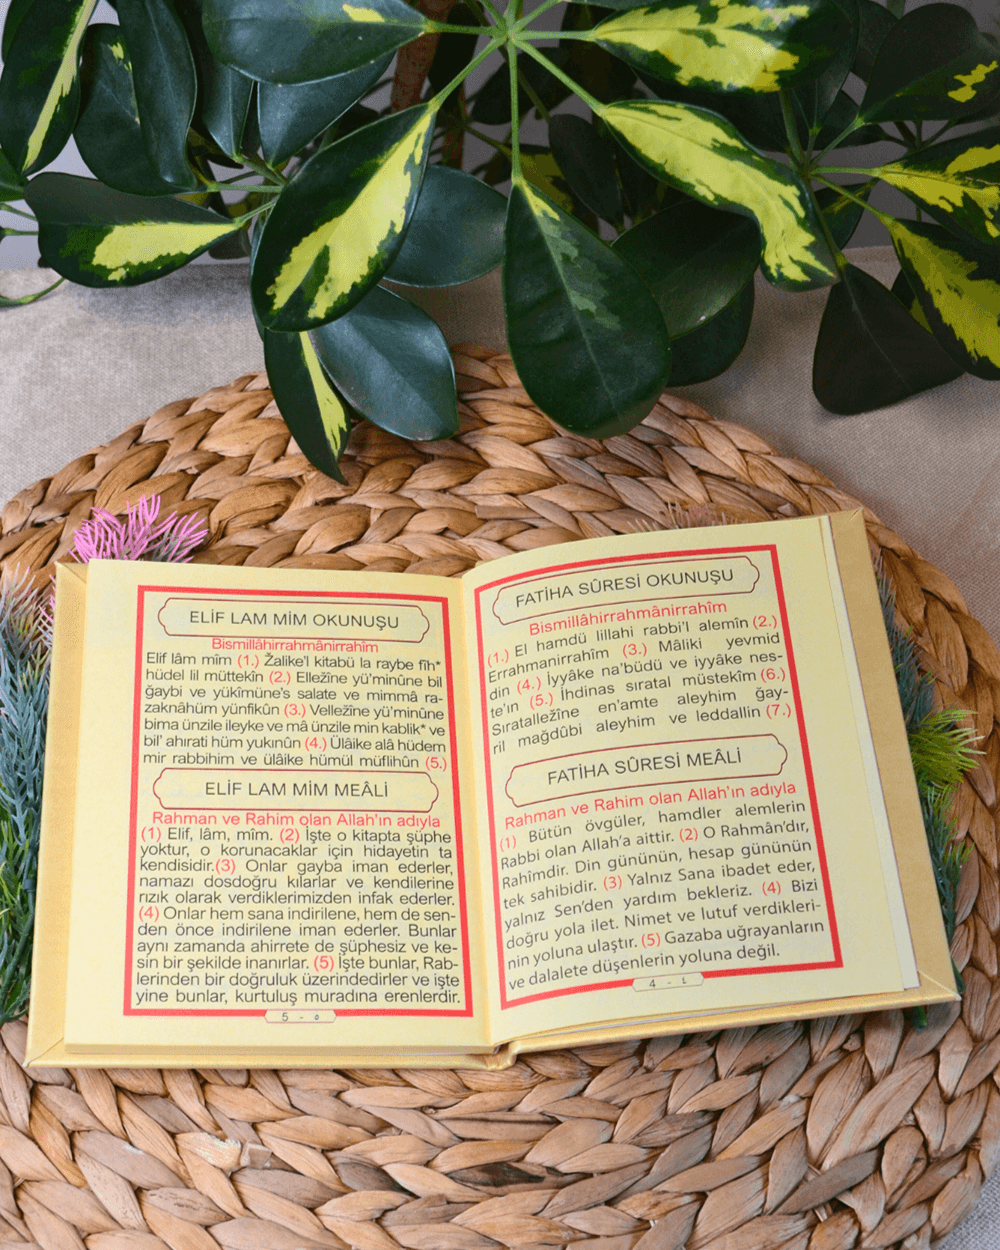 FATİHA SÛRESİ OKUNUŞU
Bismillâhirrahmânirrahîm
(1.) El hamdü lillahi rabbi'l alemîn (2.)
Errahmanirrahîm (3.) Mâliki yevmid
din (4.) İyyâke na'büdü ve iyyâke nes-
te'ın (5.) İhdinas sıratal müstekîm (6.)
Sıratallezîne en'amte aleyhim ğay-
ril mağdûbi aleyhim ve leddallin (7.)
FATİHA SÛRESİ MEÂLİ
Rahman ve Rahim olan Allah'ın adıyla
(1) Bütün övgüler, hamdler alemlerin
Rabbi olan Allah'a aittir. (2) O Rahmân'dır,
Rahîmdir. Din gününün, hesap gününün
tek sahibidir. (3) Yalnız Sana ibadet eder,
yalnız Sen'den yardım bekleriz. (4) Bizi
doğru yola ilet. Nimet ve lutuf verdikleri-
nin yoluna ulaştır. (5) Gazaba uğrayanların
ve dalalete düşenlerin yoluna değil.
4 - ٤
ELİF LAM MİM OKUNUŞU
Bismillâhirrahmânirrahîm
Elif lâm mîm (1.) Žalike'l kitabü la raybe fîh*
hüdel lil müttekîn (2.) Ellezîne yü'minûne bil
ğaybi ve yükîmüne's salate ve mimmâ ra-
zaknâhüm yünfikûn (3.) Vellezîne yü'minûne
bima ünzile ileyke ve mâ ünzile min kablik* ve
bil' ahırati hüm yukınûn (4.) Ülâike alâ hüdem
mir rabbihim ve ülâike hümül müflihûn (5.)
ELİF LAM MİM MEÂLİ
Rahman ve Rahim olan Allah'ın adıyla
(1) Elif, lâm, mîm. (2) İşte o kitapta şüphe
yoktur, o korunacaklar için hidayetin ta
kendisidir.(3) Onlar gayba iman ederler,
namazı dosdoğru kılarlar ve kendilerine
rızık olarak verdiklerimizden infak ederler.
(4) Onlar hem sana indirilene, hem de sen-
den önce indirilene iman ederler. Bunlar
aynı zamanda ahirrete de şüphesiz ve ke-
sin bir şekilde inanırlar. (5) İşte bunlar, Rab-
lerinden bir doğruluk üzerindedirler ve işte
yine bunlar, kurtuluş muradına erenlerdir.
5 - ٥